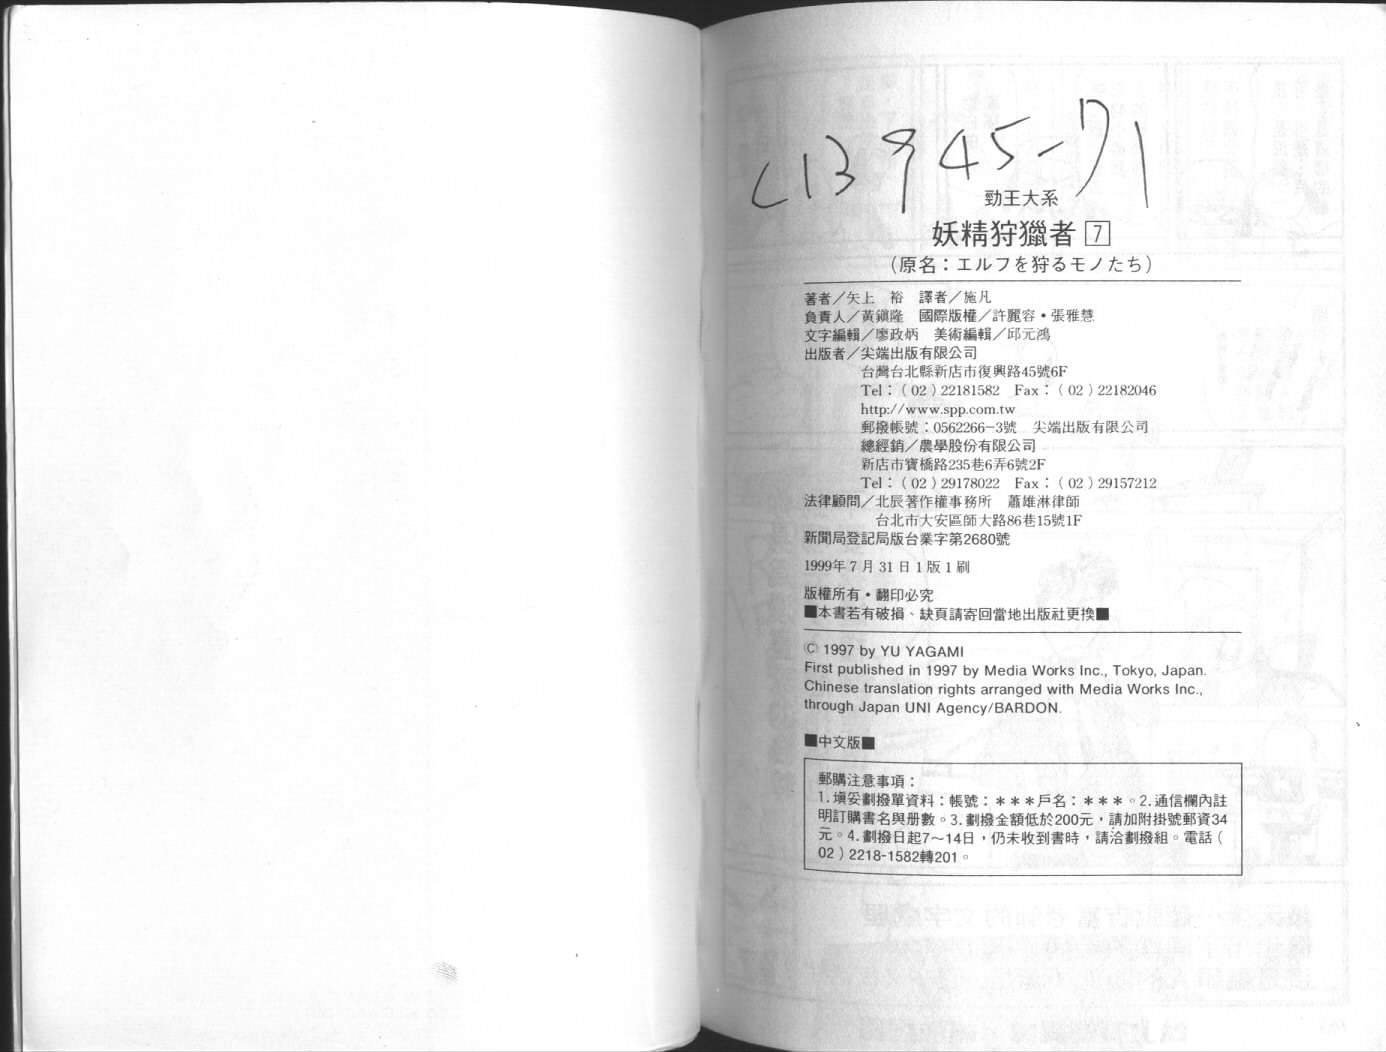 C13945-71
勁王大系
妖精狩獵者 7
(原名：エルフを狩るモノたち)
著者／矢上 裕 譯者／施凡
負責人／黃鎮隆 國際版權／許麗容・張雅慧
文字編輯／廖政炳 美術編輯／邱元鴻
出版者／尖端出版有限公司
台灣台北縣新店市復興路45號6F
Tel：(02)22181582 Fax：(02)22182046
http://www.spp.com.tw
郵撥帳號：0562266-3號 尖端出版有限公司
總經銷／農學股份有限公司
新店市寶橋路235巷6弄6號2F
Tel：(02)29178022 Fax：(02)29157212
法律顧問／北辰著作權事務所 蕭雄淋律師
台北市大安區師大路86巷15號1F
新聞局登記局版台業字第2680號
1999年7月31日1版1刷
版權所有・翻印必究
■本書若有破損、缺頁請寄回當地出版社更換■
© 1997 by YU YAGAMI
First published in 1997 by Media Works Inc., Tokyo, Japan.
Chinese translation rights arranged with Media Works Inc.,
through Japan UNI Agency/BARDON.
■中文版■
郵購注意事項：
1.填妥劃撥單資料：帳號：＊＊＊戶名：＊＊＊。2.通信欄內註
明訂購書名與册數。3.劃撥金額低於200元，請加附掛號郵資34
元。4.劃撥日起7～14日，仍未收到書時，請洽劃撥組。電話（
02）2218-1582轉201。